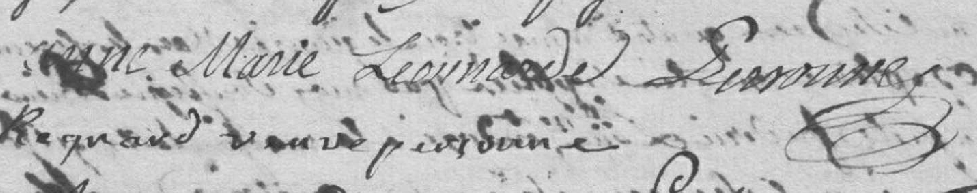 anne Marie Legnarde Peronne
Regnard veuve peronne